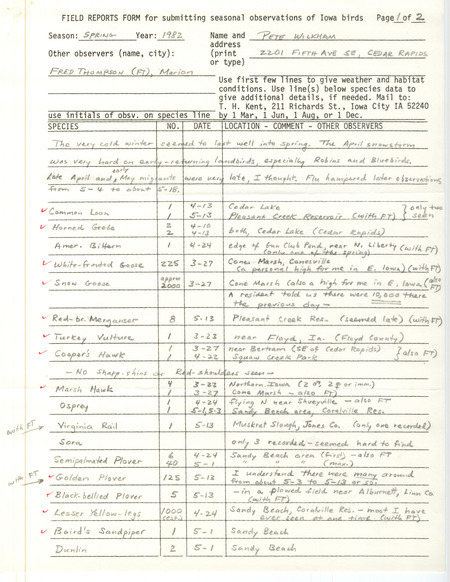 FIELD REPORTS FORM for submitting seasonal observations of Iowa birds Page 1 of 2
Season: SPRING Year: 1982 Name and address (print or type) PETE WICKHAM
2201 FIFTH AVE SE, CEDAR RAPIDS
Other observers (name, city):
FRED THOMPSON (FT), Marion
Use first few lines to give weather and habitat
conditions. Use line(s) below species data to
give additional details, if needed. Mail to:
T. H. Kent, 211 Richards St., Iowa City IA 52240
use initials of obsv. on species line by 1 Mar, 1 Jun, 1 Aug, or 1 Dec.
SPECIES NO. DATE LOCATION - COMMENT - OTHER OBSERVERS
The very cold winter seemed to last well into spring. The April snowstorm
was very hard on early-returning landbirds, especially Robins and Bluebirds.
Late April and early May migrants were very late, I thought. Flu hampered later observations
from 5-4 to about 5-18.
Common Loon 1 4-13 Cedar Lake } only two seen
1 5-13 Pleasant Creek Reservoir (with FT)
Horned Grebe 2 4-10
2 4-13 both, Cedar Lake (Cedar Rapids)
Amer. Bittern 1 4-24 edge of Gun Club Pond, near N. Liberty (with FT)
(only one of the spring)
White-fronted Goose 225 3-27 Cone Marsh, Conesville
(a personal high for me in E. Iowa) (with FT)
Snow Goose approx 2000 3-27 Cone Marsh (also a high for me in E. Iowa) (also FT)
A resident told us there were 10,000 there
the previous day -
Red-br. Merganser 8 5-13 Pleasant Creek Res. (seemed late) (with FT)
Turkey Vulture 1 3-23 near Floyd, Ia. (Floyd County)
Cooper's Hawk 1 3-27 near Bertram (SE of Cedar Rapids) } (also FT)
1 4-22 Squaw Creek Park
- NO Sharp-shins or Red-shoulders seen -
Marsh Hawk 4 3-23 Northern Iowa (2 ♂, 2 ♀ or imm.)
1 3-27 Cone Marsh - also FT
Osprey 1 4-24 flying N near Shueyville - also FT
1 5-1, 5-3 Sandy Beach area, Coralville Res.
with FT Virginia Rail 1 5-13 Muskrat Slough, Jones Co. (only one recorded)
Sora only 3 recorded - seemed hard to find
Semipalmated Plover 6 4-24 Sandy Beach area (first) - also FT
40 5-1 " " " (max.)
with FT Golden Plover 125 5-13 I understand there were many around
from about 5-3 to 5-13 or so.
Black-bellied Plover 5 5-13 - in a plowed field near Alburnett, Linn Co
(with FT)
Lesser Yellow-legs 1000 (est.) 4-24 Sandy Beach, Coralville Res. - most I have
ever seen at one time (with FT)
Baird's Sandpiper 1 5-1 Sandy Beach
Dunlin 2 5-1 Sandy Beach